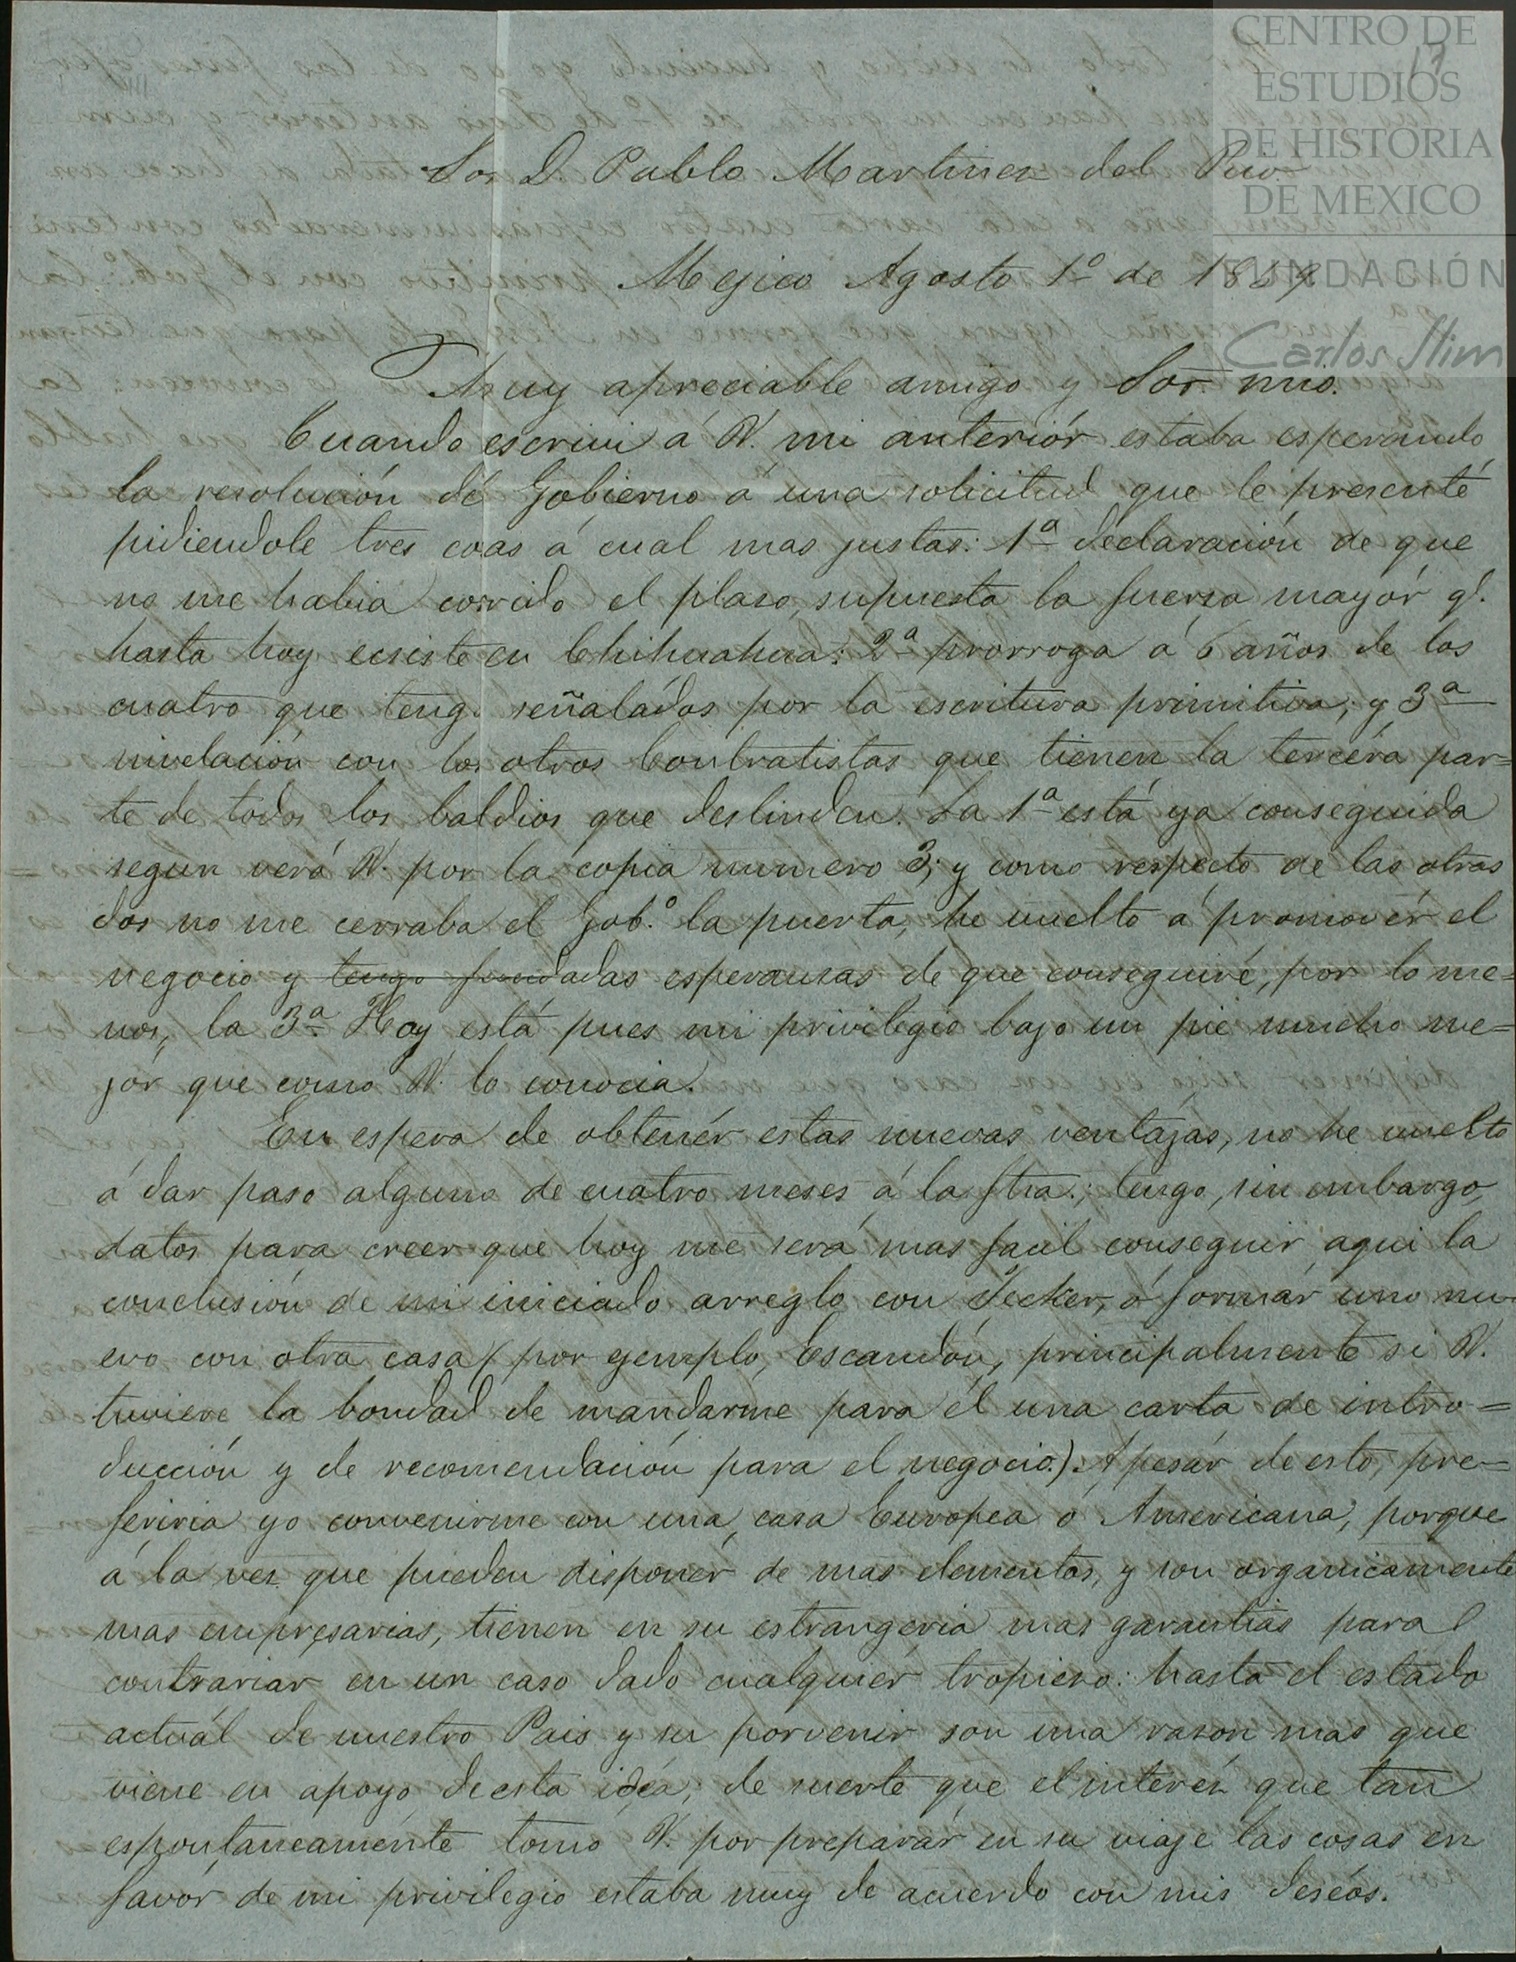 CENTRO DE
ESTUDIOS
DE HISTORIA
DE MEXICO
FUNDACIÓN
Carlos Slim
17
Sor. D. Pablo Martinez del Rio
Mejico Agosto 1º de 1864
Muy apreciable amigo y Sor. mio.
Cuando escrivi á V. mi anteriór estaba esperando
la resolución dél Gobierno á una solicitud que le presenté
pidiendole tres coas á cual mas justas: 1ª declaración de que
no me habia corrido el plaso, supuesta la fuersa mayór q.
hasta hoy ecsiste en Chihuahua: 2ª prorroga á 6 años de los
cuatro que tengo señaládos por la escritura primitiva; y 3ª
nivelación con los otros Contratistas que tienen la tercéra par=
te de todos los baldios que deslinden. La 1ª está ya conseguida
segun verá V. por la copia numero 3; y como respecto de las otras
dos no me cerraba el Gob.º la puerta, he vuelto á promovér el
negocio y tengo fundadas esperansas de que conseguiré, por lo me=
nos, la 3ª Hoy está pues mi privilegio bajo un pié mucho me=
jor que como V. lo conocia.
En espera de obtenér estas nuevas ventájas, no he vuelto
á dar paso alguno de cuatro meses á la fha.; tengo, sin embargo,
datos para creer que hoy me será mas facil conseguir aqui la
conclusión de mi iniciado arreglo con Jecker, ó formár uno nu-
evo con otra casa (por ejemplo, Escandón, principalmente si V.
tuviere la bondad de mandarme para él una carta de intro=
ducción y de recomendación para el negocio). Apesár de esto, pre=
feriria yo convenirme con una casa Európea ó Americana, porque
á la vez que pueden disponér de mas elementos, y son organicamente
mas empresarias, tienen en su estrangeria mas garantias para
contrariar en un caso dado cualquiér tropieso: hasta el estádo
actuál de nuestro Pais y su porvenir son una rason mas que
viene en apoyo de esta idéa; de suerte que el interéz que tan
espontaneaménte tomo V. por preparár en su viaje las cosas en
favór de mi privilegio estaba muy de acuerdo con mis deséos.